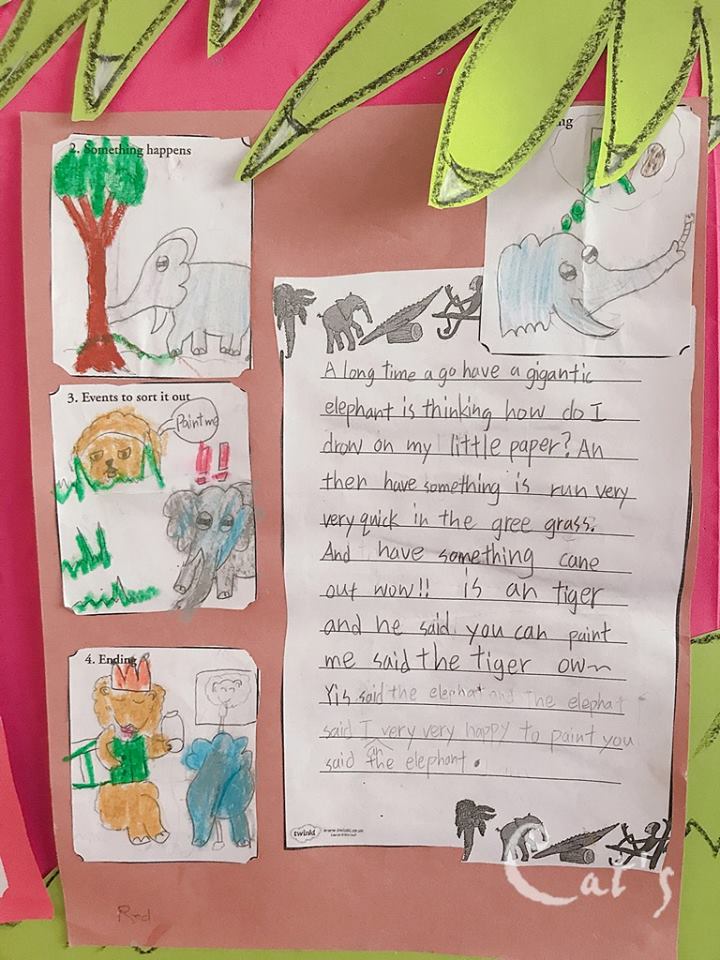 2. Something happens
ng
3. Events to sort it out
Paint me
!!
4. Ending
A long time a go have a gigantic
elephant is thinking how do I
drow on my little paper? An
then have something is run very
very quick in the gree grass.
And have something cane
out wow!! is an tiger
and he said you can paint
me said the tiger own
Yis said the elephat and The elephat
said I can very very happy to paint you
said the elephant.
twinkl www.twinkl.co.uk
Rnd
Cat's